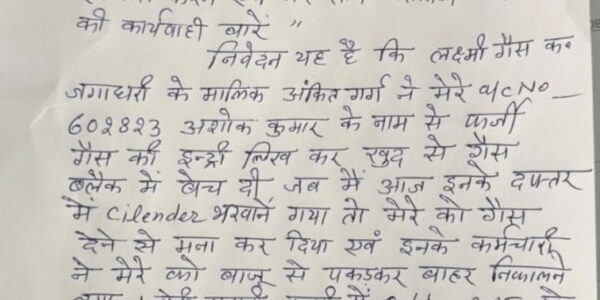 की कार्यवाही बारें "
निवेदन यह है कि लक्ष्मी गैस क॰
जगाधरी के मालिक अंकित गर्ग ने मेरे a/c No _
602823 अशोक कुमार के नाम से फर्जी
गैस की इन्द्री लिख कर खुद से गैस
ब्लैक में बेच दी जब मैं आज इनके दफ्तर
में Cilender भरवाने गया तो मेरे को गैस
देने से मना कर दिया एवं इनके कर्मचारी
ने मेरे को बाजू से पकडकर बाहर निकालने